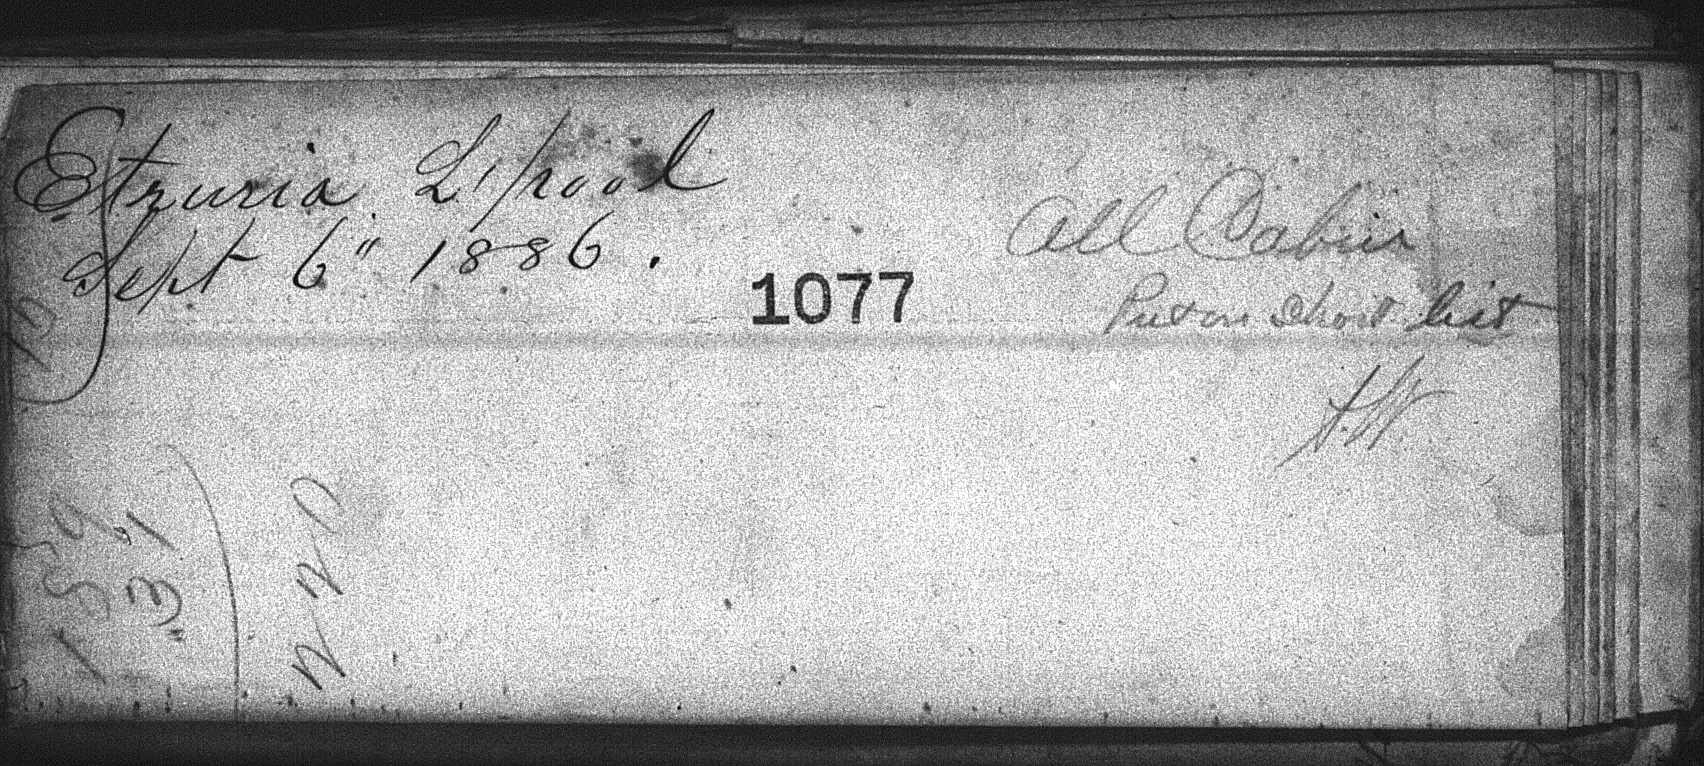 Etruria L'pool
Sept 6" 1886.
All Cabin
1077
Put on Short list
220